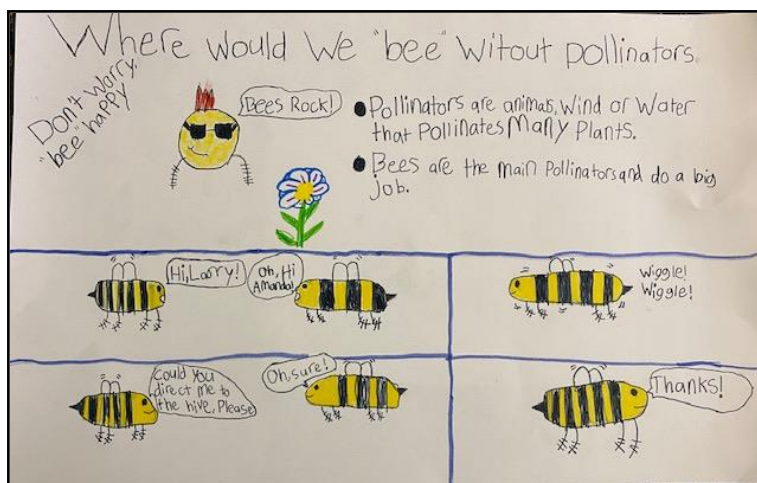 Where would We "bee" Witout pollinators.
Don't Worry,
"bee" happy
Bees Rock!
Pollinators are animals, Wind or Water
that Pollinates Many Plants.
Bees are the main Pollinators and do a big
Job.
Hi, Larry!
Oh, Hi
Amanda!
Wiggle!
Wiggle!
Could You
direct me to
the hive, Please
Oh, sure!
Thanks!